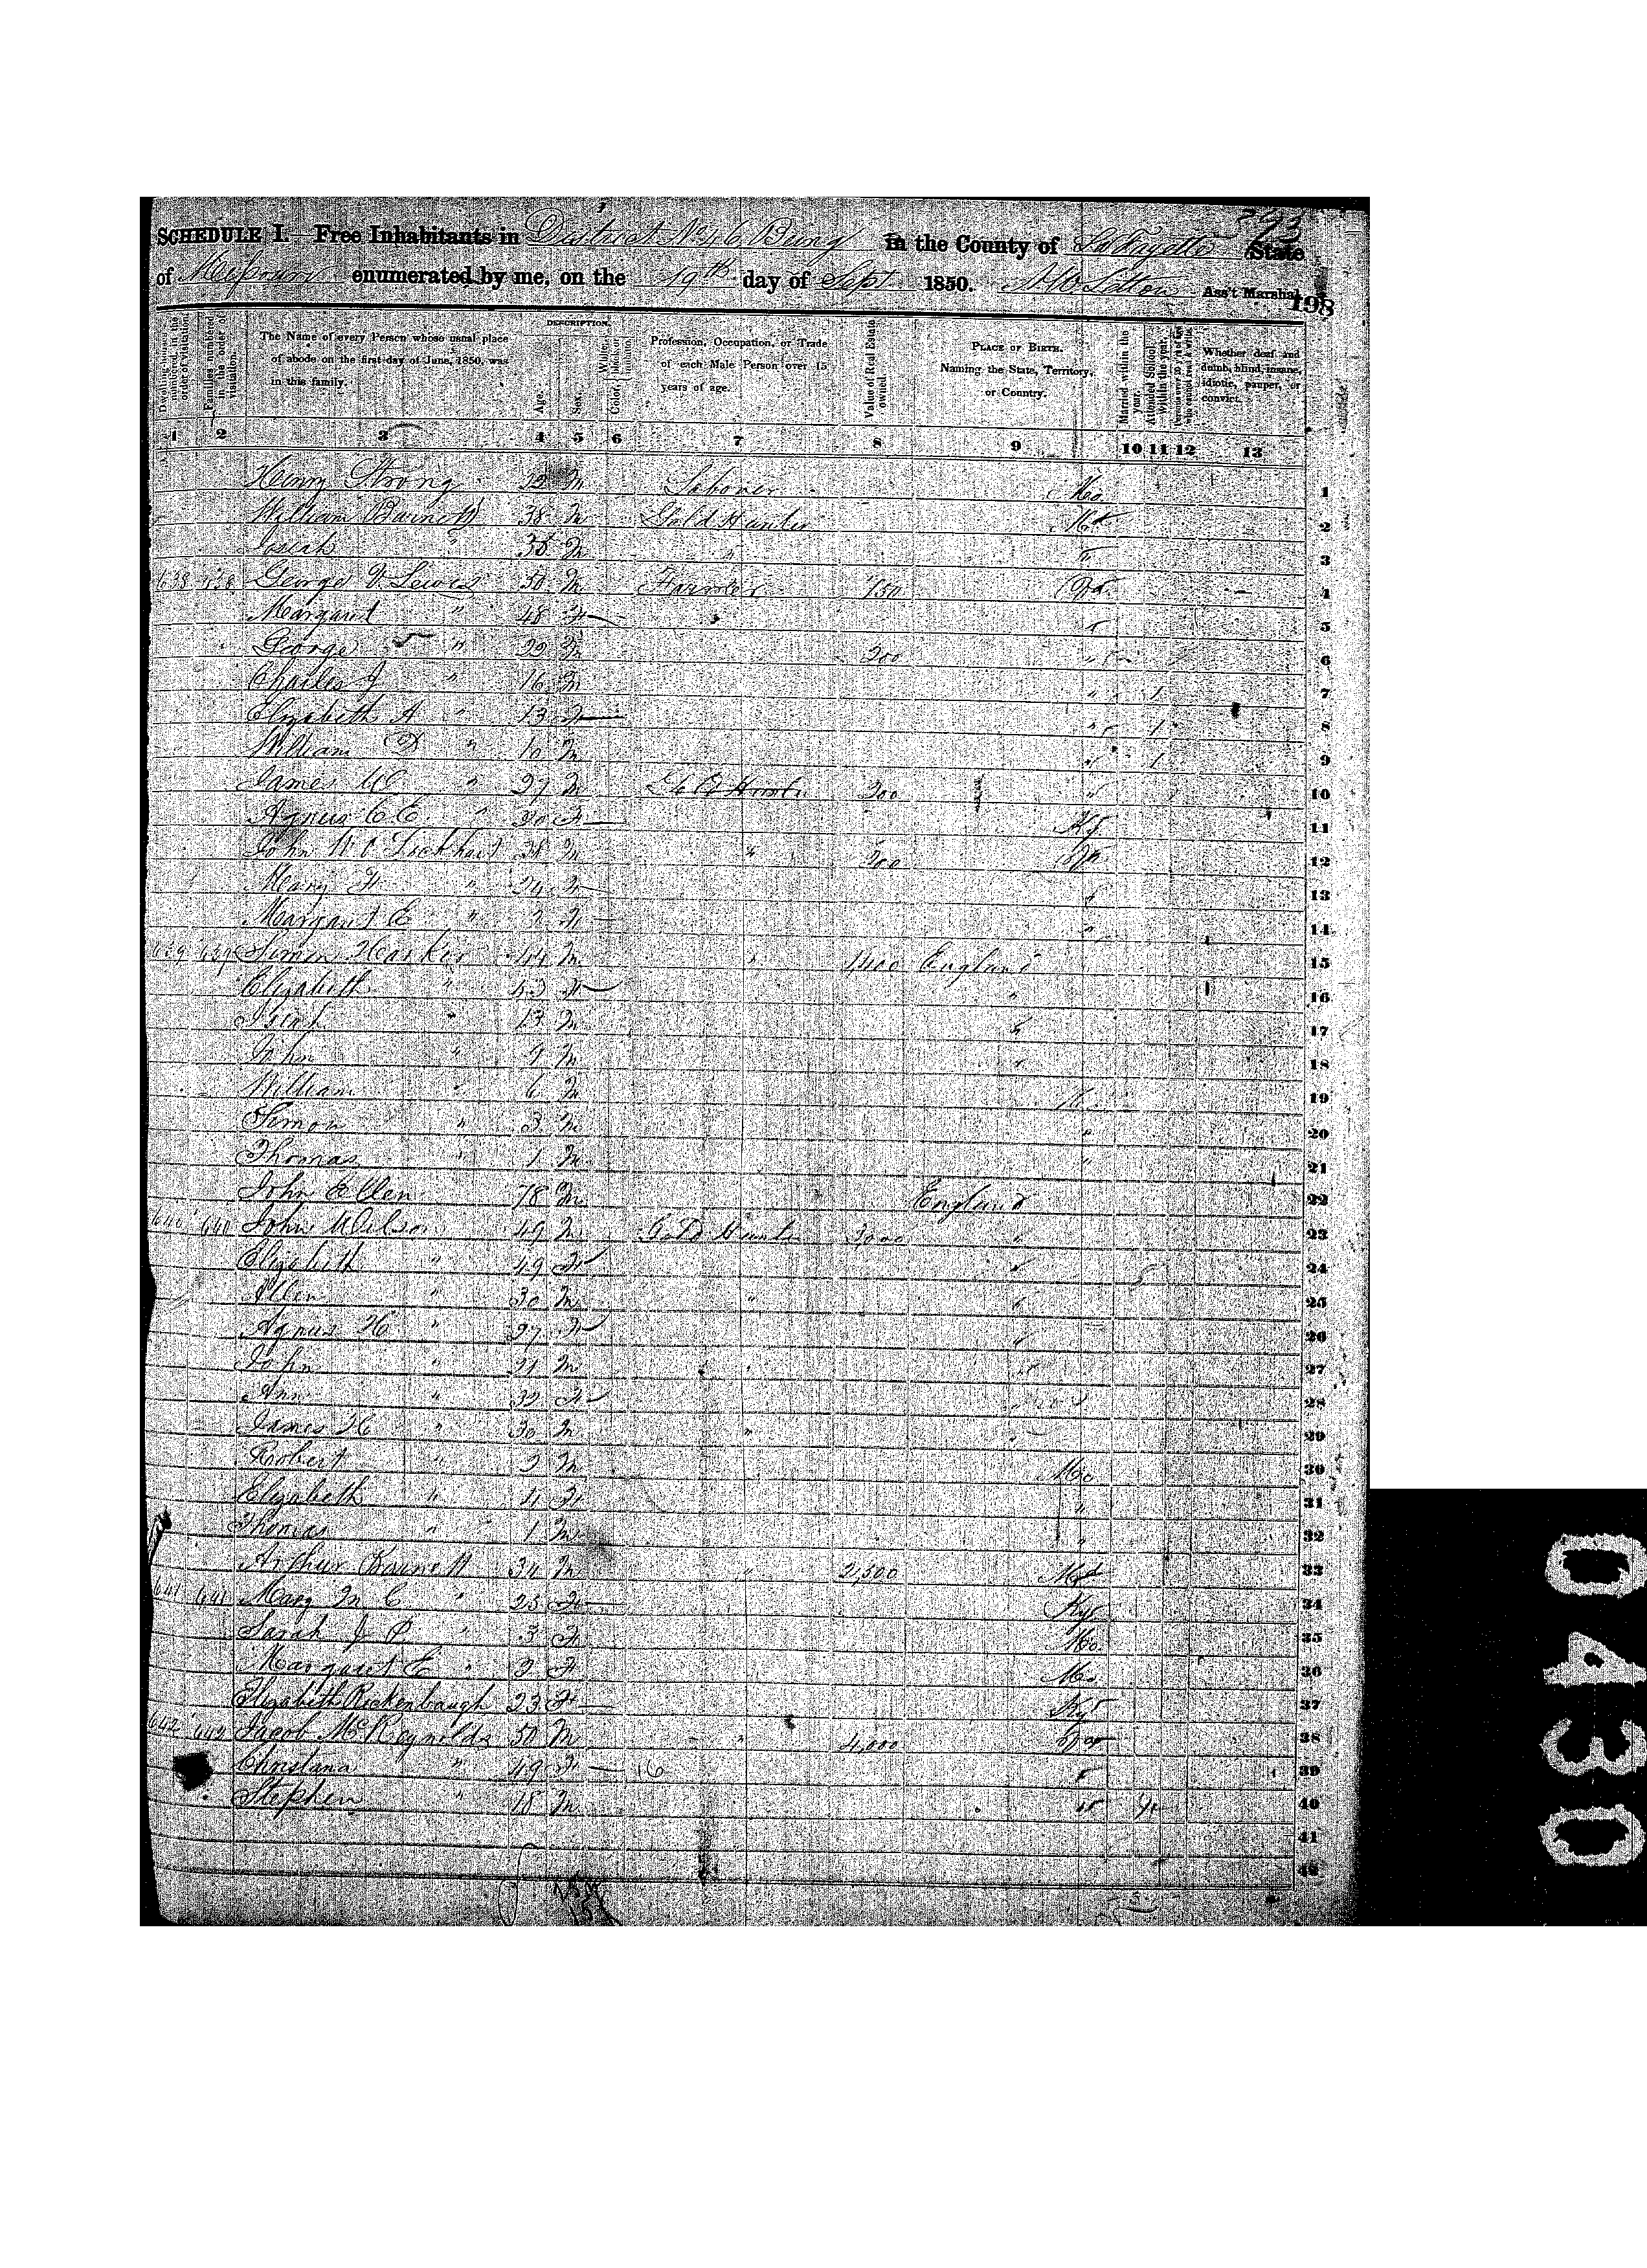 293
SCHEDULE I.—Free Inhabitants in District No 46 Being in the County of La Fayette State
of Missouri enumerated by me, on the 19th day of Sept 1850. Ass't Marshal
198
Dwelling-houses numbered in the order of visitation.
Families numbered in the order of visitation.
The Name of every Person whose usual place of abode on the first day of June, 1850, was in this family.
DESCRIPTION.
Age.
Sex.
White, black, or mulatto.
Profession, Occupation, or Trade of each Male Person over 15 years of age.
Value of Real Estate owned.
PLACE OF BIRTH. Naming the State, Territory, or Country.
Married within the year.
Attended School within the year.
Whether deaf and dumb, blind, insane, idiotic, pauper, or convict.
1 2 3 4 5 6 7 8 9 10 11 12 13
Henry Strong M Laborer Mo. 1
William Burnett 38 M Gold Hunter 2
Josiah " M " " 3
638 638 George Lewis 50 M Farmer 150 Va. 4
Margaret " 48 F " 5
George " 22 M 200 " 6
Charles J " 16 M " 1 7
Elizabeth A " 13 F " 1 8
William D " 10 M " 1 9
James " 27 M Gold Hunter 200 " 10
Agnus C E " F Ky. 11
John Lockhart 38 M " 200 Va 12
Mary " 24 F " 13
Margaret E " 2 F " 14
639 639 Simon Harker 44 M " 1400 England 15
Elizabeth " 43 F " 16
" 13 M " 17
John " 9 M " 18
William " 6 M 19
Simon " 3 M " 20
Thomas " 1 M " 21
John Ellen 78 M England 22
640 640 John Wilson 49 M Gold Hunter 3,000 " 23
Elizabeth " 49 F " 24
Allen " 30 M " " 25
Agnus H " 27 F " 26
John " 21 M " " 27
Ann " 32 F " 28
James H " 30 M " " 29
Robert " 2 M Mo 30
Elizabeth " 4 F " 31
Thomas " 1 M " 32
Arthur Burnett 34 M " 2,500 Md 33
641 641 Mary M C " 23 F Ky 34
Sarah J P " 3 F Mo. 35
Margaret E " 2 F Mo. 36
Elizabeth Rickenbaugh 23 F Ky 37
642 642 Jacob McReynolds 50 M " 4,000 Va 38
Christana " 49 F 16 " 39
Stephen " 18 M " 40
41
42
0430